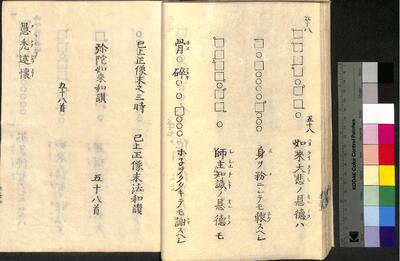 五十八
五十八
如来大悲ノ恩徳ハ
身ヲ粉ニシテモ報スヘシ
師主知識ノ恩徳モ
骨碎
ホネヲクタキテモ謝スヘシ
已上正像末之三時
已上正像末法和讃
弥陀如来和讃
五十八首
五十八首
愚禿述懐